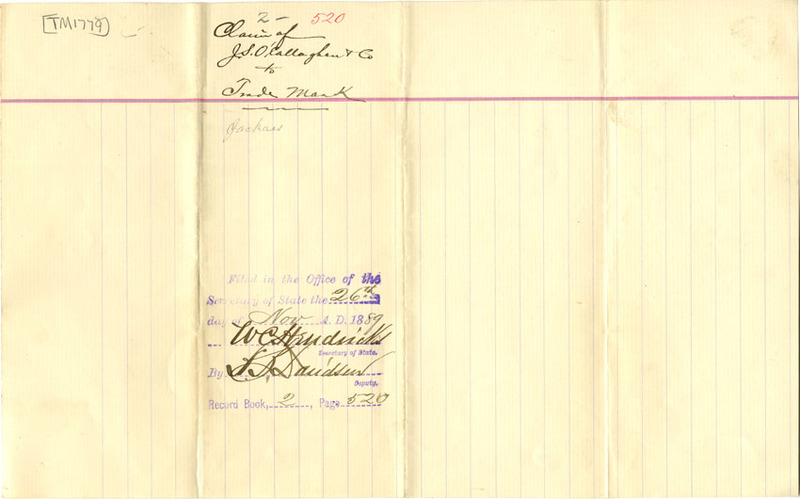 TM1779
2 - 520
Claim of
J.S. O'Callaghan & Co
to
Trade Mark
Filed in the Office of the
Secretary of State the 26th
day of Nov A. D. 1889
W C Hendricks
Secretary of State.
By Davidson
Deputy.
Record Book, 2, Page 520